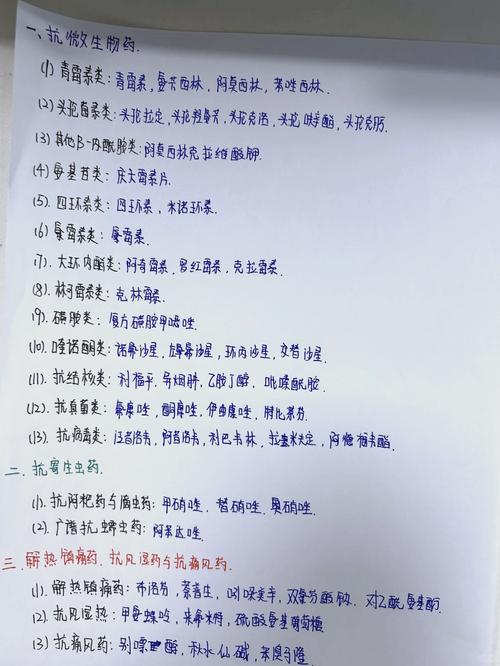 一、抗微生物药.
(1) 青霉素类：青霉素，氨苄西林，阿莫西林，苯唑西林.
(2) 头孢菌素类：头孢拉定，头孢羟氨苄，头孢克洛，头孢呋辛酯，头孢克肟
(3) 其他β-内酰胺类：阿莫西林克拉维酸钾
(4) 氨基苷类：庆大霉素片.
(5). 四环素类：四环素，米诺环素.
(6) 氯霉素类：氯霉素.
(7). 大环内酯类：阿奇霉素，罗红霉素，克拉霉素.
(8). 林可霉素类：克林霉素.
(9). 磺胺类：复方磺胺甲噁唑.
(10). 喹诺酮类：诺氟沙星，左氧沙星，环丙沙星，
(11). 抗结核类：利福平，异烟肼，乙胺丁醇，吡嗪酰胺.
(12). 抗真菌类：氟康唑，酮康唑，伊曲康唑，特比萘芬.
(13). 抗病毒类：阿昔洛韦，利巴韦林，拉米夫定，
二、抗寄生虫药.
(1). 抗阿米巴药与滴虫药：甲硝唑，替硝唑，奥硝唑.
(2). 广谱抗蠕虫药：阿苯达唑.
三、解热镇痛药、抗风湿药与抗痛风药.
(1). 解热镇痛药：布洛芬，萘普生，吲哚美辛，双氯芬酸钠，对乙酰氨基酚.
(2). 抗风湿热：硫酸氨基葡萄糖
(3) 抗痛风药：别嘌醇，秋水仙碱，苯溴马隆